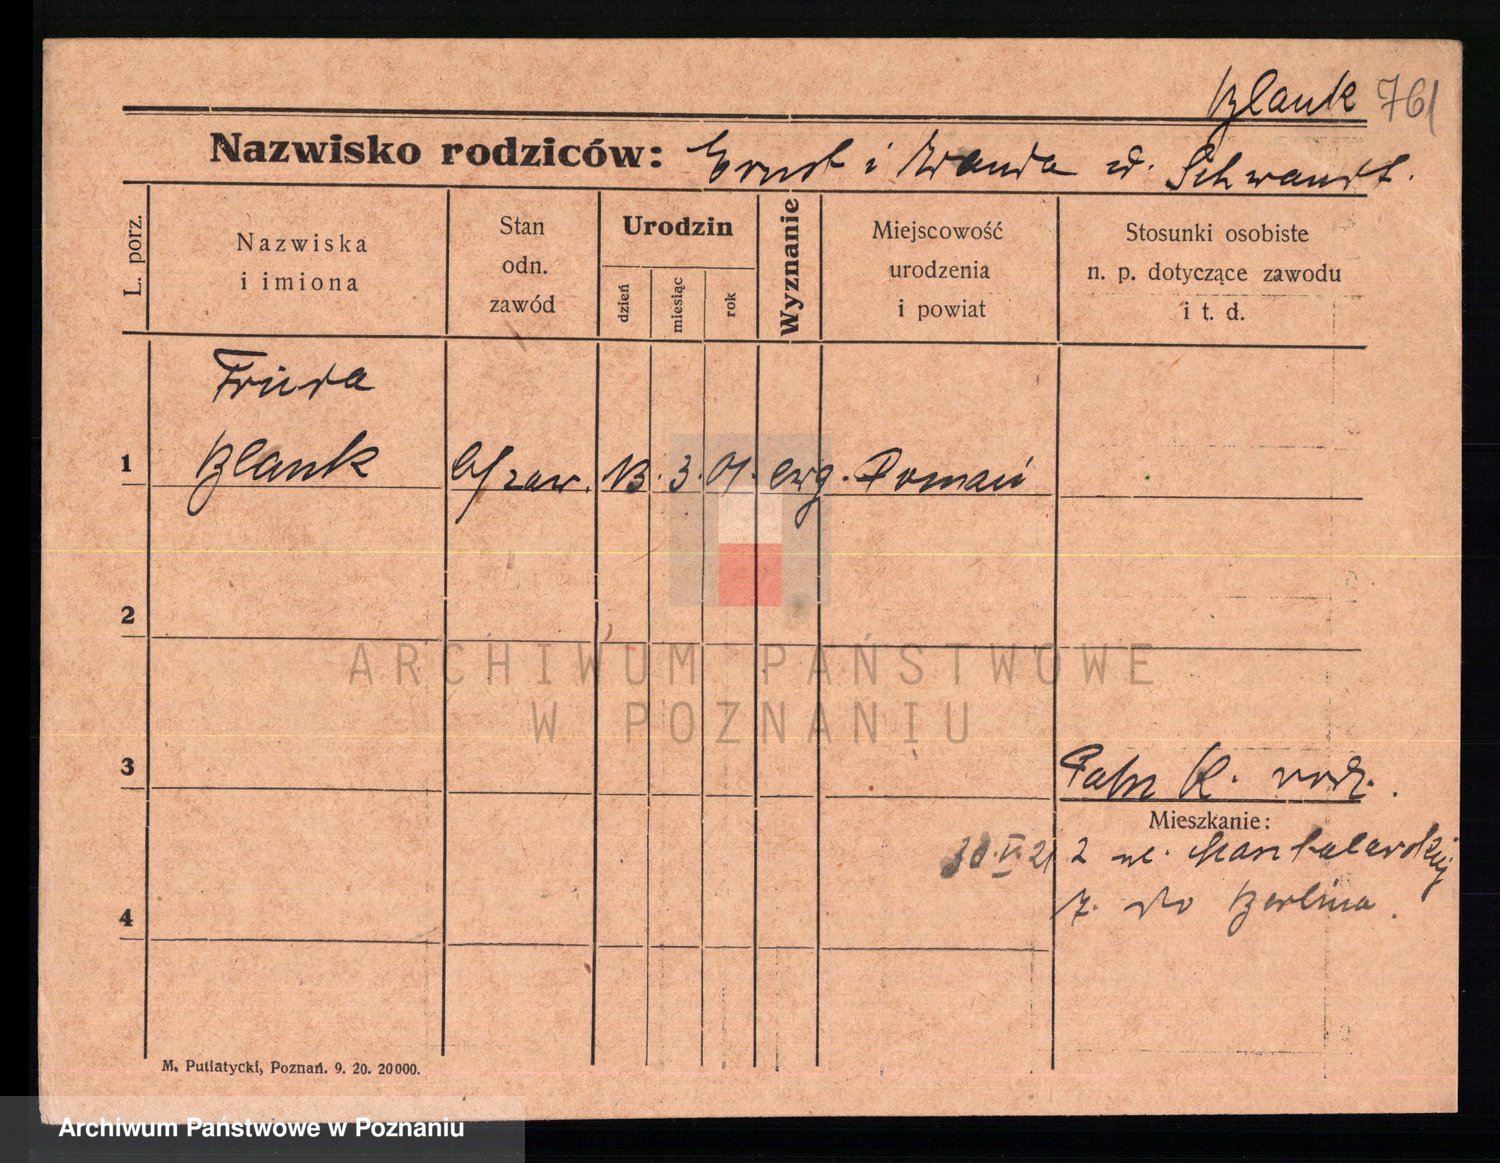 Blank 761
Nazwisko rodziców: Ernst i Wanda d. Schwandt.
L. porz.
Nazwiska
i imiona
Stan
odn.
zawód
Urodzin
dzień
miesiąc
rok
Wyznanie
Miejscowość
urodzenia
i powiat
Stosunki osobiste
n. p. dotyczące zawodu
i t. d.
Frieda
1 Blank b/zaw. 13. 3. 01. ewg. Poznań
2
ARCHIWUM PAŃSTWOWE
W POZNANIU
3
K. rodz.
Mieszkanie:
30.V.21 z ul.
4
do Berlina.
M. Putiatycki, Poznań. 9. 20. 20000.
Archiwum Państwowe w Poznaniu